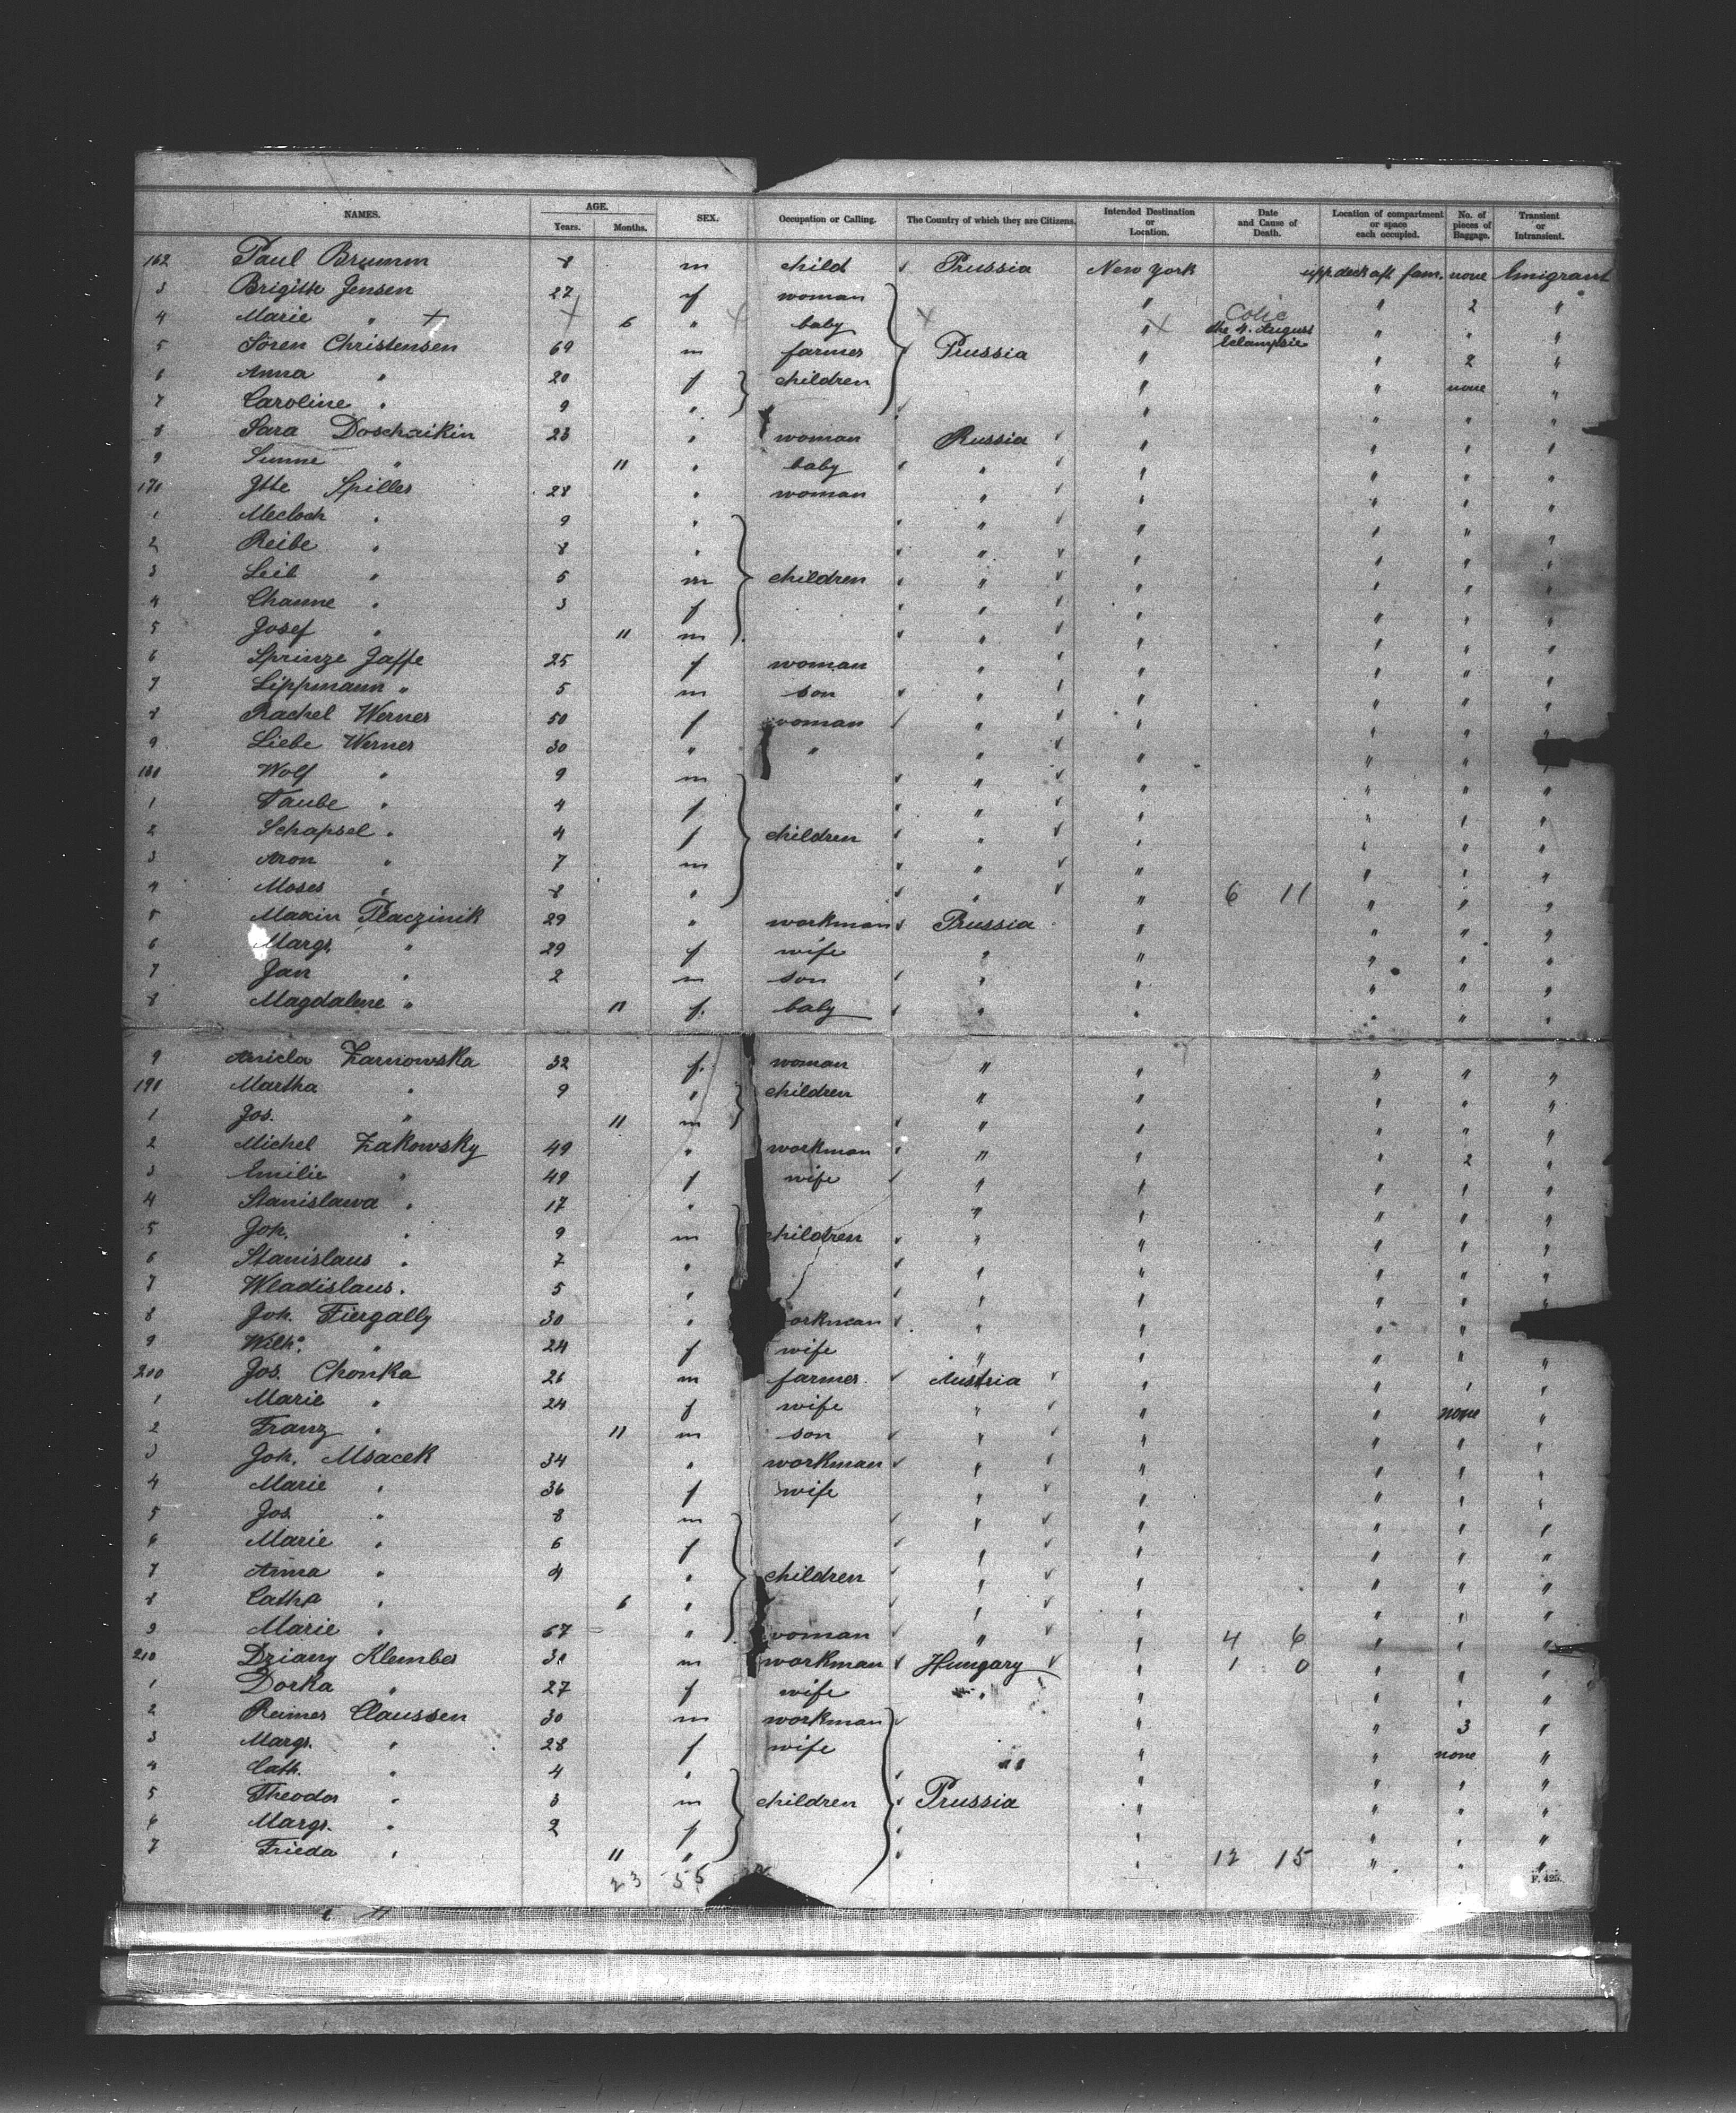 NAMES. AGE. Years. Months. SEX. Occupation or Calling. The Country of which they are Citizens. Intended Destination or Location. Date and Cause of Death. Location of compartment or space each occupied. No. of pieces of Baggage. Transient or Intransient.
162 Paul Brumm 8 m child Prussia New York upp. deck aft fam. none Emigrant
3 Brigitte Jensen 27 f woman " " 2 "
4 Marie " + 6 " baby " Colic the 4. August Eclampsie " " "
5 Sören Christensen 69 m farmer Prussia " " 2 "
6 Anna " 20 f children " " none "
7 Caroline " 9 " " " " "
8 Sara Doschaikin 23 " woman Russia " " " "
9 " 11 " baby " " " " "
170 Itte Spiller 28 " woman " " " " "
1 " 9 " " " " " "
2 Reibe " 8 " " " " " "
3 Leib " 5 m children " " " " "
4 Channe " 3 f " " " " "
5 Josef " 11 m " " " " "
6 Sprinze Jaffe 25 f woman " " " " "
7 Lippmann " 5 m son " " " " "
8 Rachel Werner 50 f woman " " " " "
9 Liebe Werner 30 " " " " " " "
180 Wolf " 9 m " " " " "
1 Taube " 4 f " " " " "
2 Schapsel " 4 f children " " " " "
3 Aron " 7 m " " " " "
4 Moses " 8 " " " 6 11 " " "
5 Maxin Placzinik 29 " workman Prussia " " " "
6 Margr. " 29 f wife " " " " "
7 Jan " 2 m son " " " " "
8 Magdalene " 11 f. baby " " " " "
9 Aniela Zarnowska 32 f. woman " " " " "
190 Martha " 9 " children " " " " "
1 Jos. " 11 m " " " " "
2 Michel Zakowsky 49 " workman " " " 2 "
3 Emilie " 49 f wife " " " " "
4 Stanislawa " 17 " " " " " "
5 Joh. " 9 m children " " " " "
6 Stanislaus " 7 " " " " " "
7 Wladislaus " 5 " " " " " "
8 Joh. Fiergally 30 " orkman " " " " "
9 Wilh. " 24 f wife " " " " "
200 Jos. Chonka 26 m farmer Austria " " 1 "
1 Marie " 24 f wife " " " none "
2 Franz " 11 m son " " " " "
3 Joh. Msacek 34 " workman " " " " "
4 Marie " 36 f wife " " " " "
5 Jos " 8 m " " " " "
6 Marie " 6 f " " " " "
7 Anna " 4 " children " " " " "
8 Catha " 6 " " " " " "
9 Marie " 67 " woman " " 4 6 " " "
210 Dziany Klember m workman Hungary " 1 0 " " "
1 Dorka " 27 f wife " " " " "
2 Reimer Claussen 30 m workman " " 3 "
3 Margr. " 28 f wife " " none "
4 Cath. " 4 " " " " "
5 Theodor " 3 m children Prussia " " " "
6 Margr. " 2 f " " " "
7 Frieda " 11 " " 12 15 " " "
23 55
F. 425.